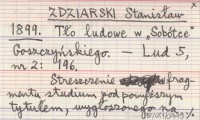 ZDZIARSKI Stanisław
1899. Tło ludowe w „Sobótce"
Goszczyńskiego. — Lud 5,
nr 2: 196.
Streszczenie frag-
mentu studium pod powyższym
tytułem, wygłoszonego na